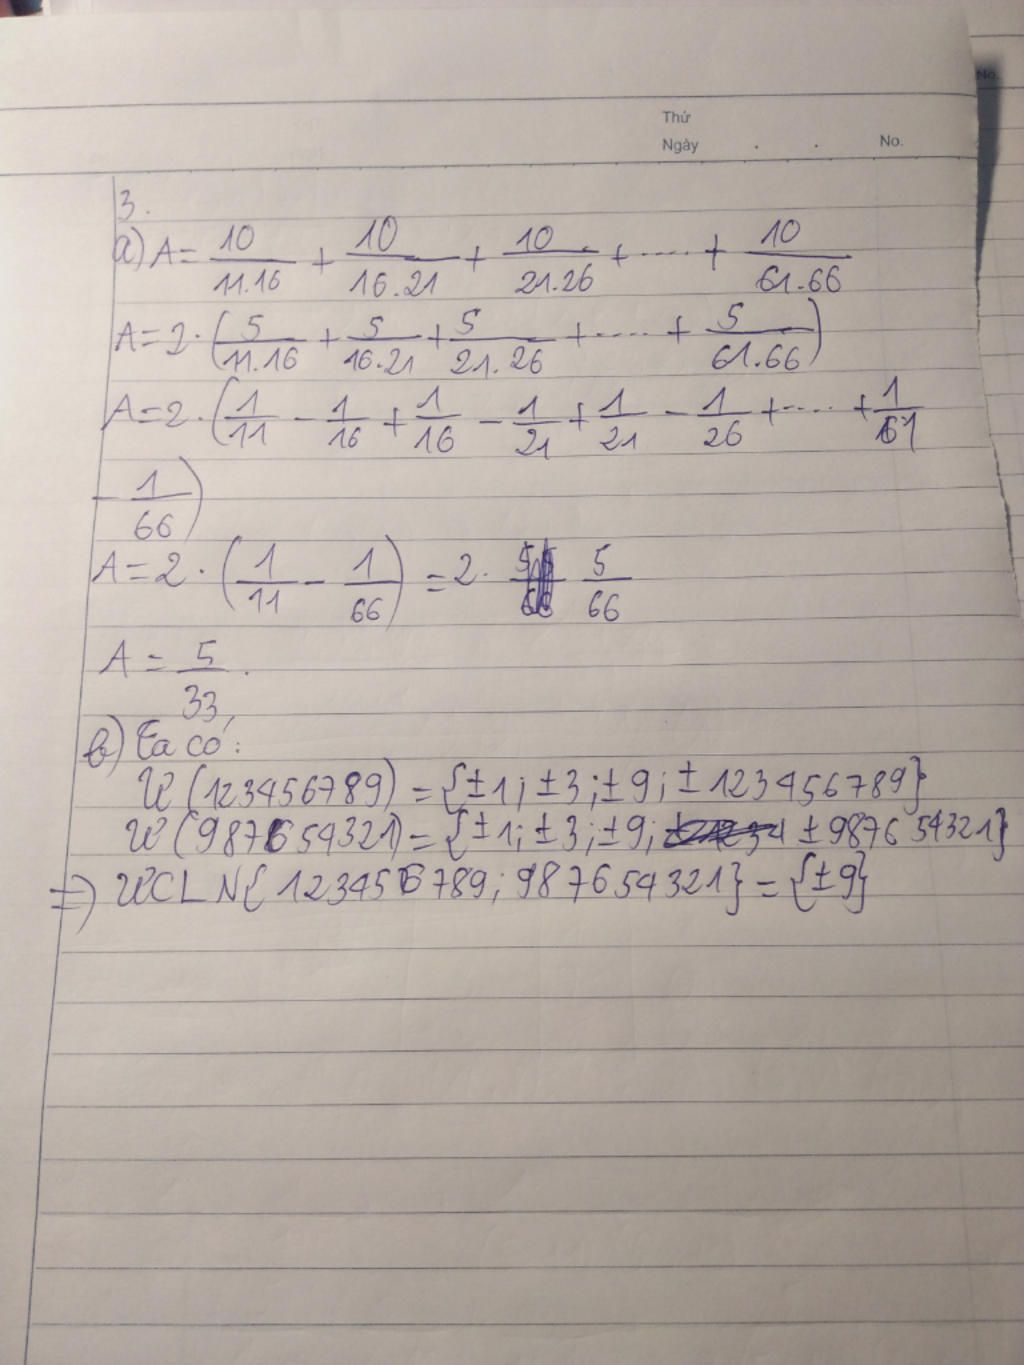 No.
Thứ
Ngày . . No.
3.
a) A = 10/11.16 + 10/16.21 + 10/21.26 + ..... + 10/61.66
A = 2 . (5/11.16 + 5/16.21 + 5/21.26 + ..... + 5/61.66)
A = 2 . (1/11 - 1/16 + 1/16 - 1/21 + 1/21 - 1/26 + ..... + 1/61
- 1/66)
A = 2 . (1/11 - 1/66) = 2 . 5/66
A = 5/33.
b) Ta có:
Ư(123456789) = {±1; ±3; ±9; ±123456789}
Ư(987654321) = {±1; ±3; ±9; ±987654321}
=> ƯCLN{123456789; 987654321} = {±9}